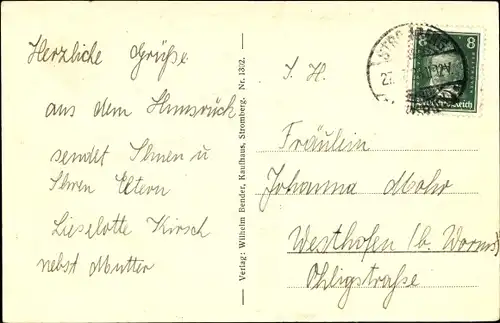 Herzliche Grüße
aus dem Hunsrück
sendet Ihnen u
Ihren Eltern
Lieselotte Kirsch
nebst Mutter
Verlag: Wilhelm Bender, Kaufhaus, Stromberg. Nr. 1332.
8
S. H.
Fräulein
Johanna Mohr
Westhofen (b. Worms)
Ohligstraße